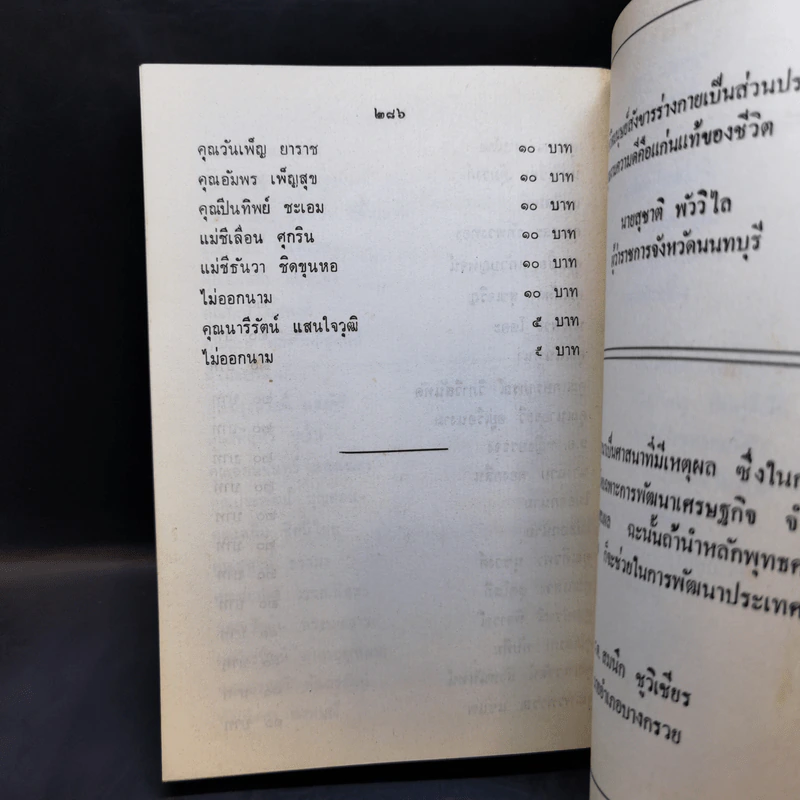 ๒๘๖
คุณวันเพ็ญ ยาราช ๑๐ บาท
คุณอัมพร เพ็ญสุข ๑๐ บาท
คุณปีนทิพย์ ชะเอม ๑๐ บาท
แม่ชีเลื่อน ศุกริน ๑๐ บาท
แม่ชีธันวา ชิดขุนหอ ๑๐ บาท
ไม่ออกนาม ๑๐ บาท
คุณนารีรัตน์ แสนใจวุฒิ ๕ บาท
ไม่ออกนาม ๕ บาท
สังขารร่างกายเป็นส่วนประ
ความดีคือแก่นแท้ของชีวิต
นายสุชาติ พัววิไล
ผู้ว่าราชการจังหวัดนนทบุรี
เป็นศาสนาที่มีเหตุผล ซึ่งในก
เฉพาะการพัฒนาเศรษฐกิจ จํา
ฉะนั้นถ้านำหลักพุทธศ
ก็จะช่วยในการพัฒนาประเทศ
ชูวิเชียร
อำเภอบางกรวย